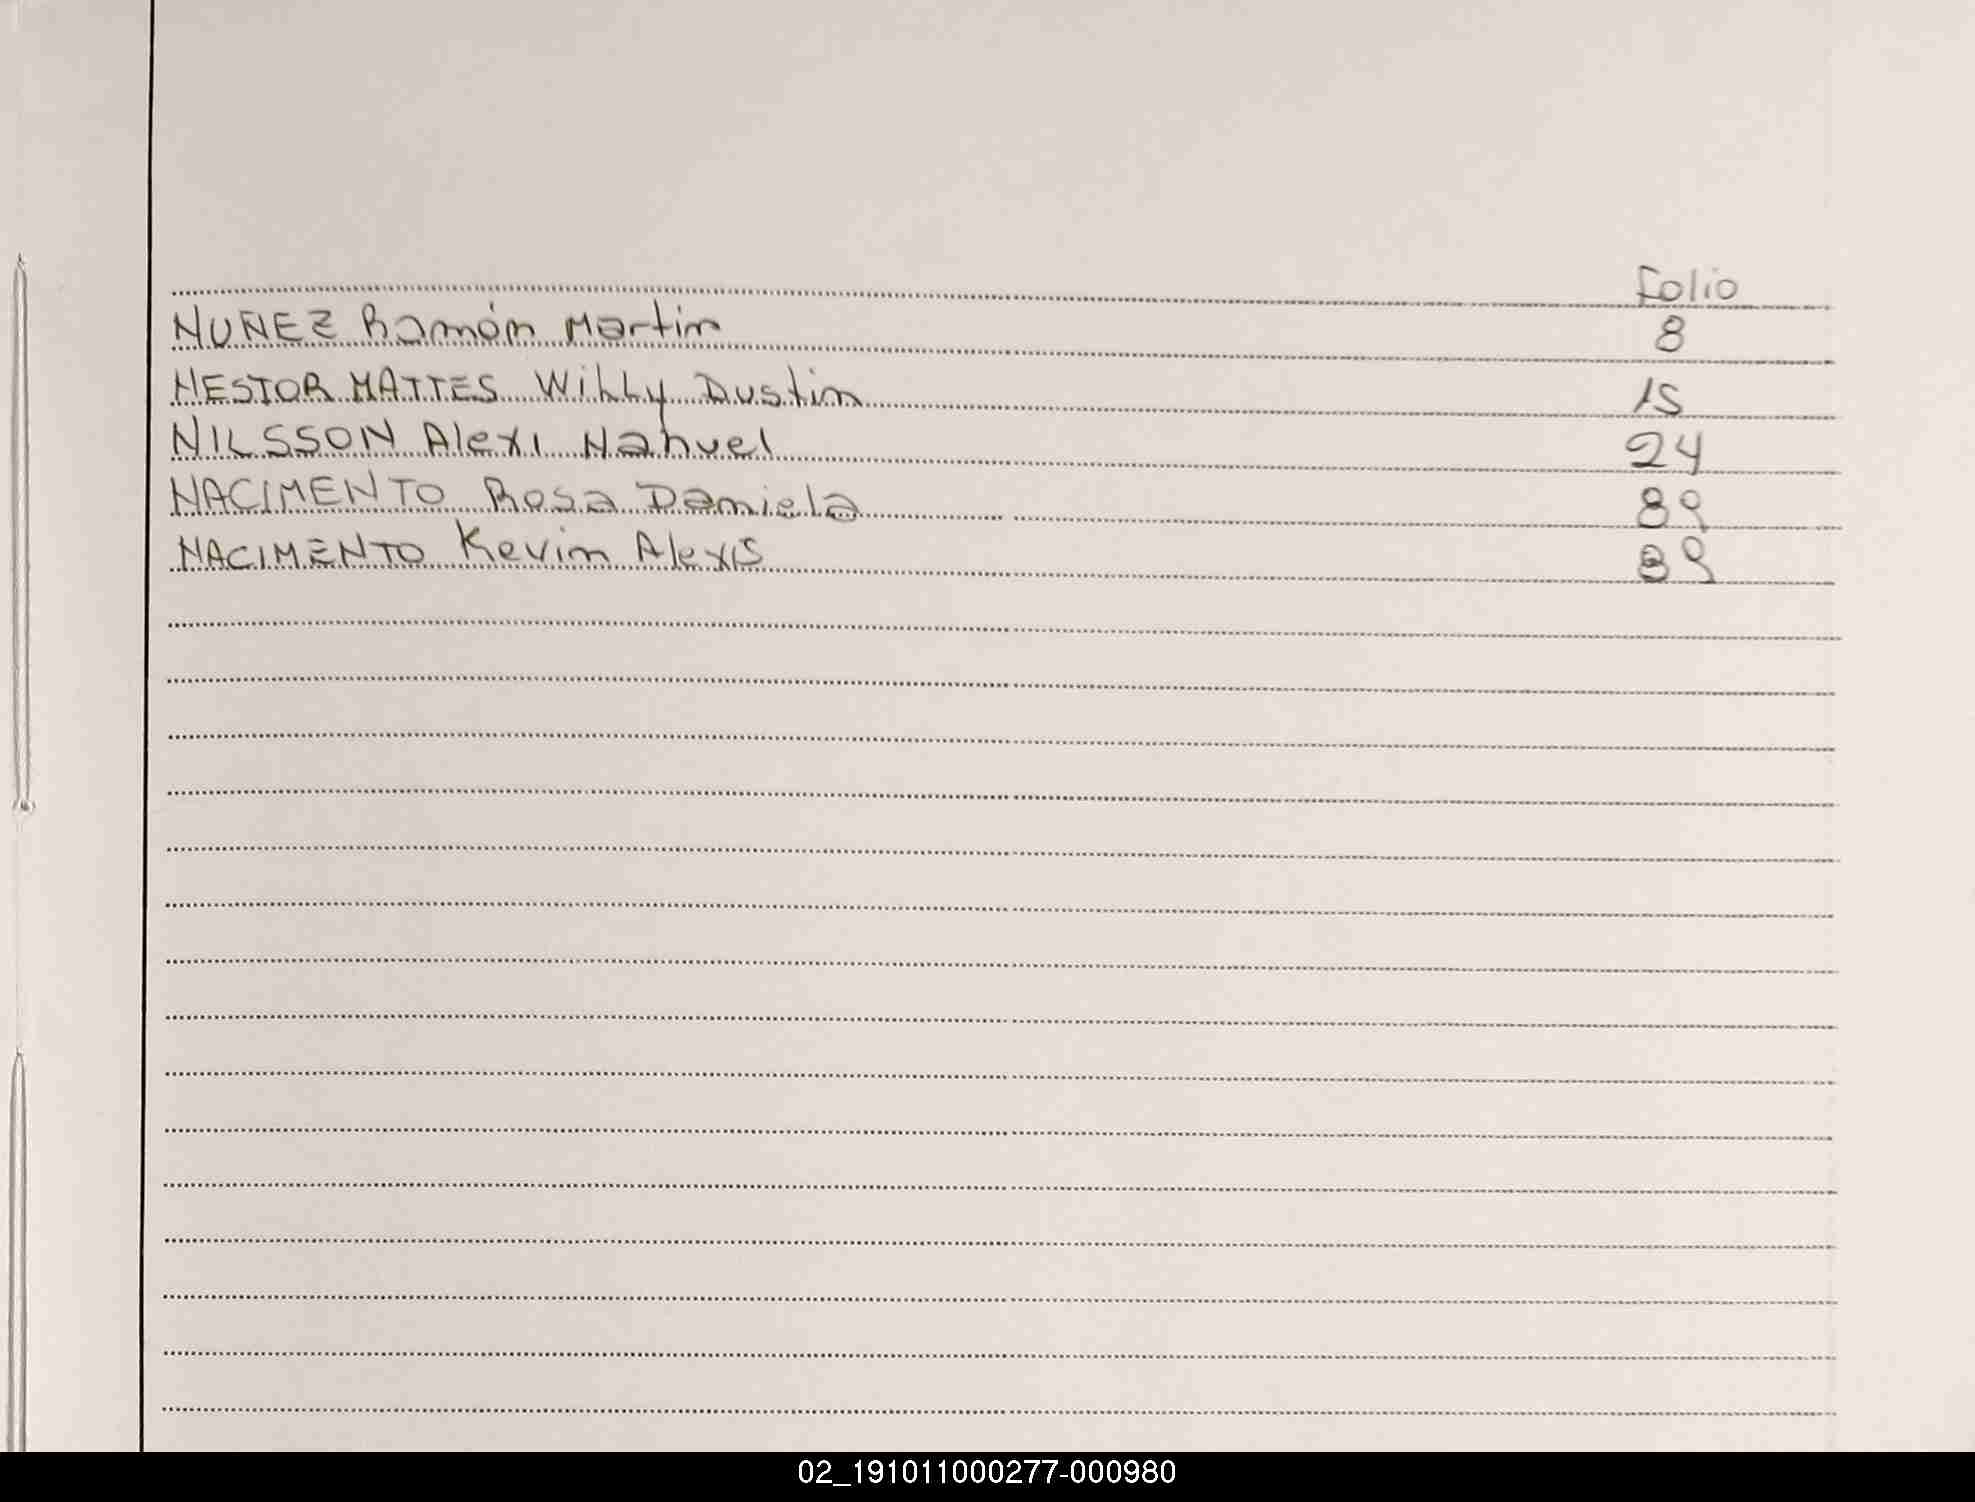 Folio
NUÑEZ Ramón Martin 8
NESTOR MATTES Willy Dustin 15
NILSSON Alexi Nahuel 24
NACIMENTO Rosa Daniela 89
NACIMENTO Kevin Alexis 89
02_191011000277-000980